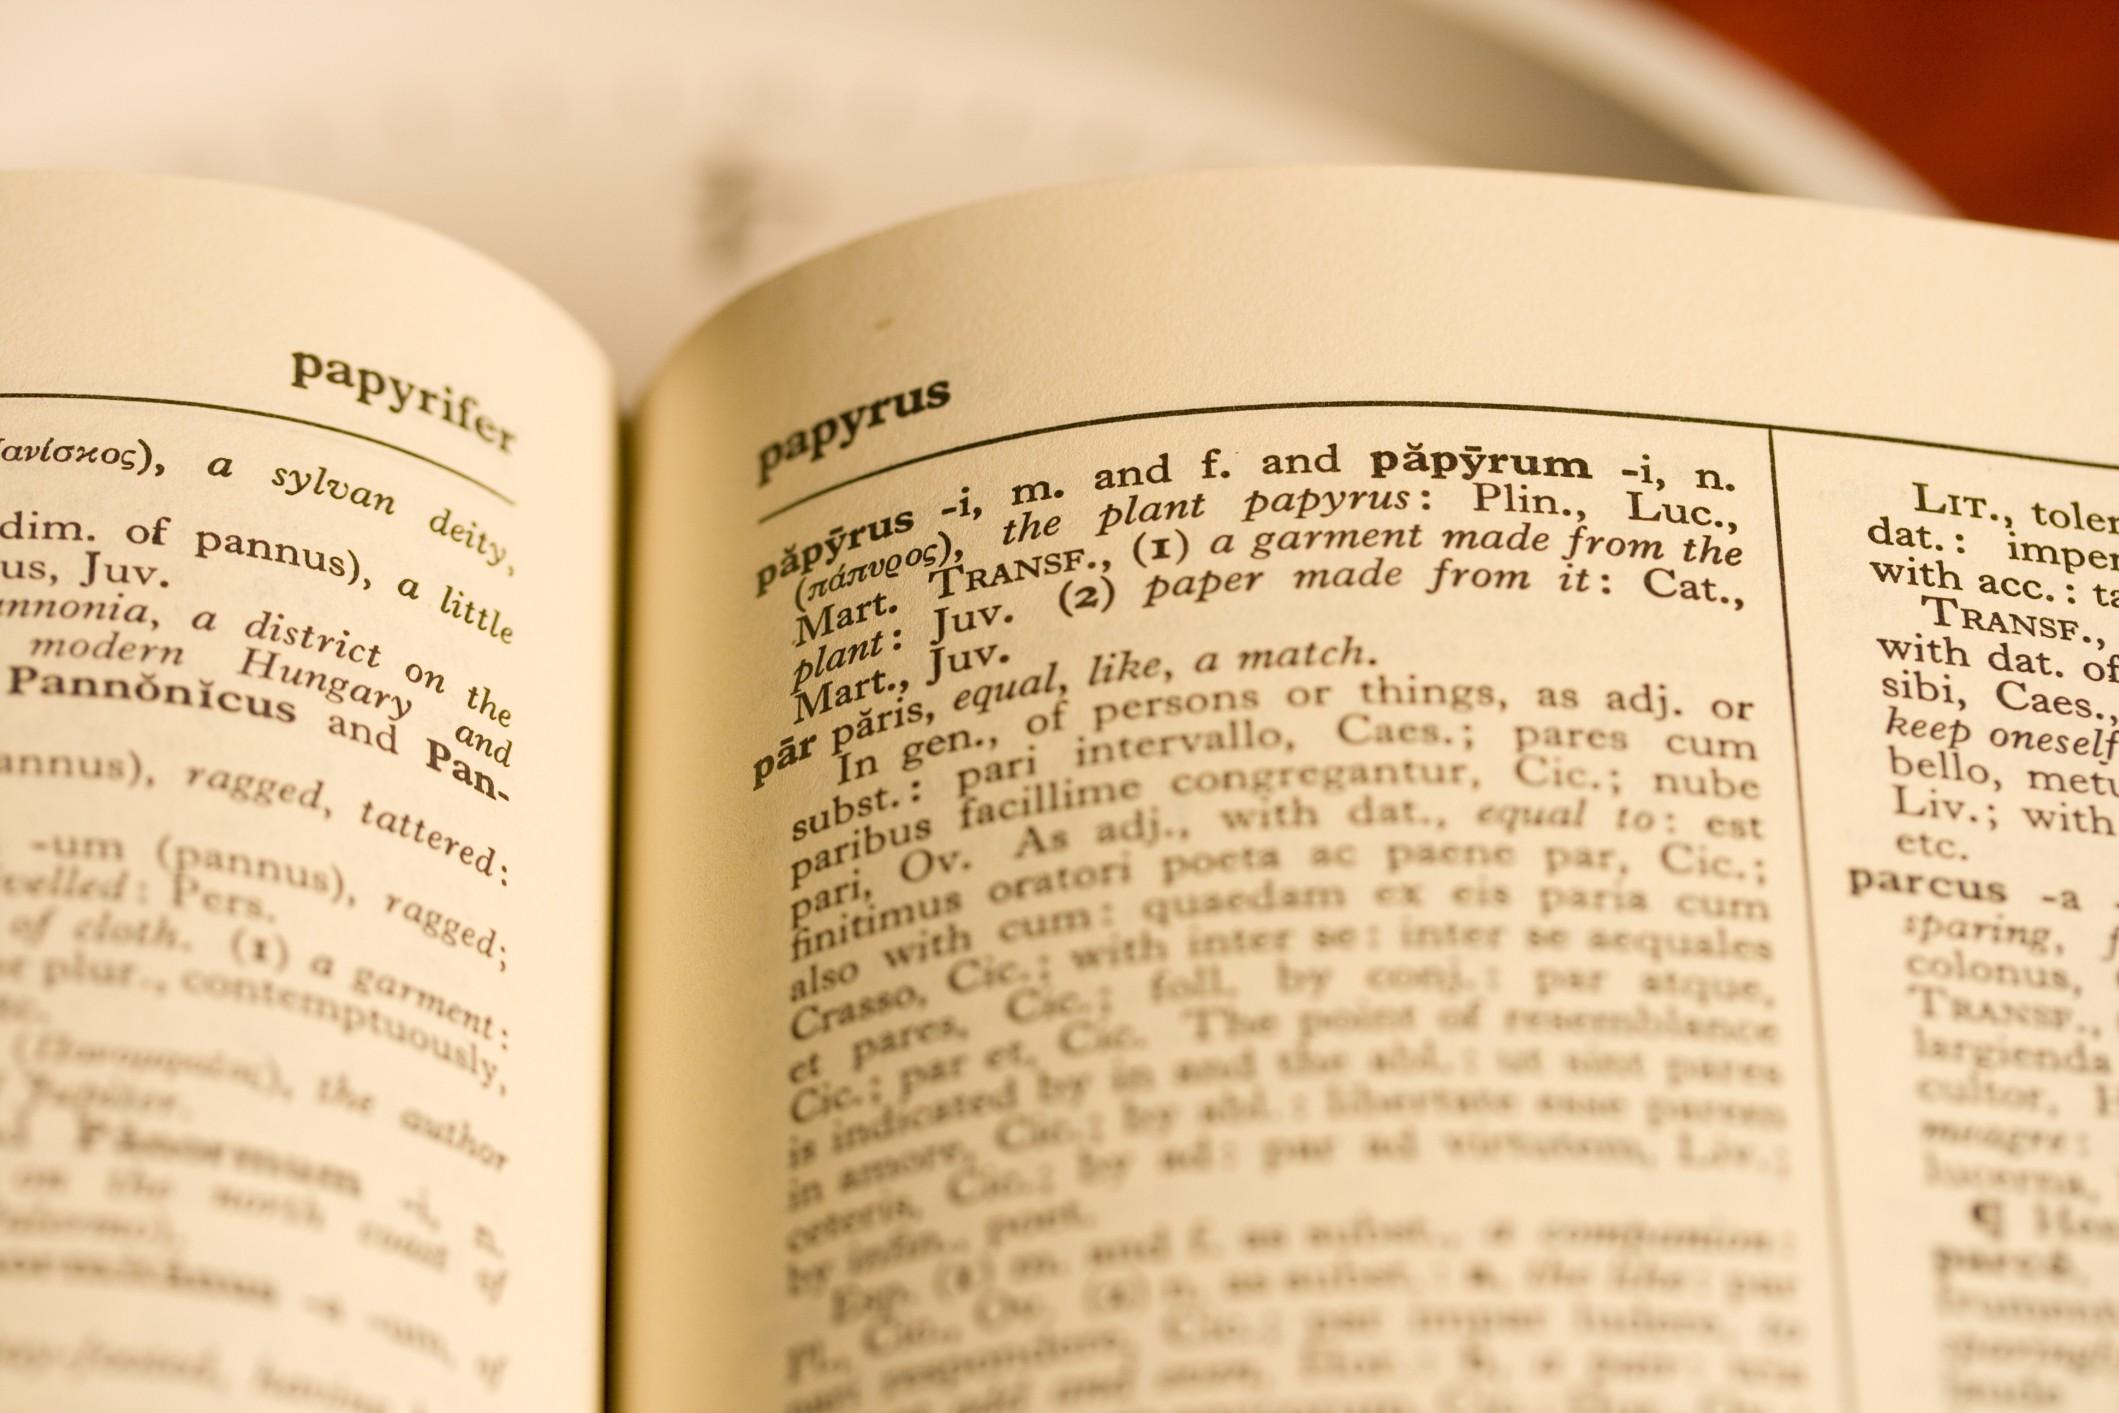 papyrifer
ανίσκος), a sylvan deity,
dim. of pannus), a little
us, Juv.
annonia, a district on the
modern Hungary and
Pannŏnĭcus and Pan-
annus), ragged, tattered:
-um (pannus), ragged;
velled: Pers.
of cloth. (1) a garment:
plur., contemptuously,
the author
Jupiter.
Pănormum -i, n.
on the north coast of
papyrus
păpȳrus -i, m. and f. and păpȳrum -i, n.
(πάπυρος), the plant papyrus: Plin., Luc.,
Mart. TRANSF., (1) a garment made from the
plant: Juv. (2) paper made from it: Cat.,
Mart., Juv.
pār păris, equal, like, a match.
In gen., of persons or things, as adj. or
subst.: pari intervallo, Caes.; pares cum
paribus facillime congregantur, Cic.; nube
pari, Ov. As adj., with dat., equal to: est
finitimus oratori poeta ac paene par, Cic.;
also with cum: quaedam ex eis paria cum
Crasso, Cic.; with inter se: inter se aequales
et pares, Cic.; foll. by conj.: par atque,
Cic.; par et, Cic. The point of resemblance
is indicated by in and the abl.: ut sint pares
in amore, Cic.; by abl.: libertate esse parem
ceteris, Cic.; by ad: par ad virtutem, Liv.;
by infin., poet.
Esp. (1) m. and f. as subst., a companion:
Pl., Cic., Ov. (2) n. as subst.: a, the like: par
LIT., toler
dat.: imper
with acc.: ta
TRANSF.,
with dat. of
sibi, Caes.,
keep oneself
bello, metu
Liv.; with
etc.
parcus -a
sparing, f
colonus,
TRANSF.,
largienda
cultor, H
meagre:
lucerna,